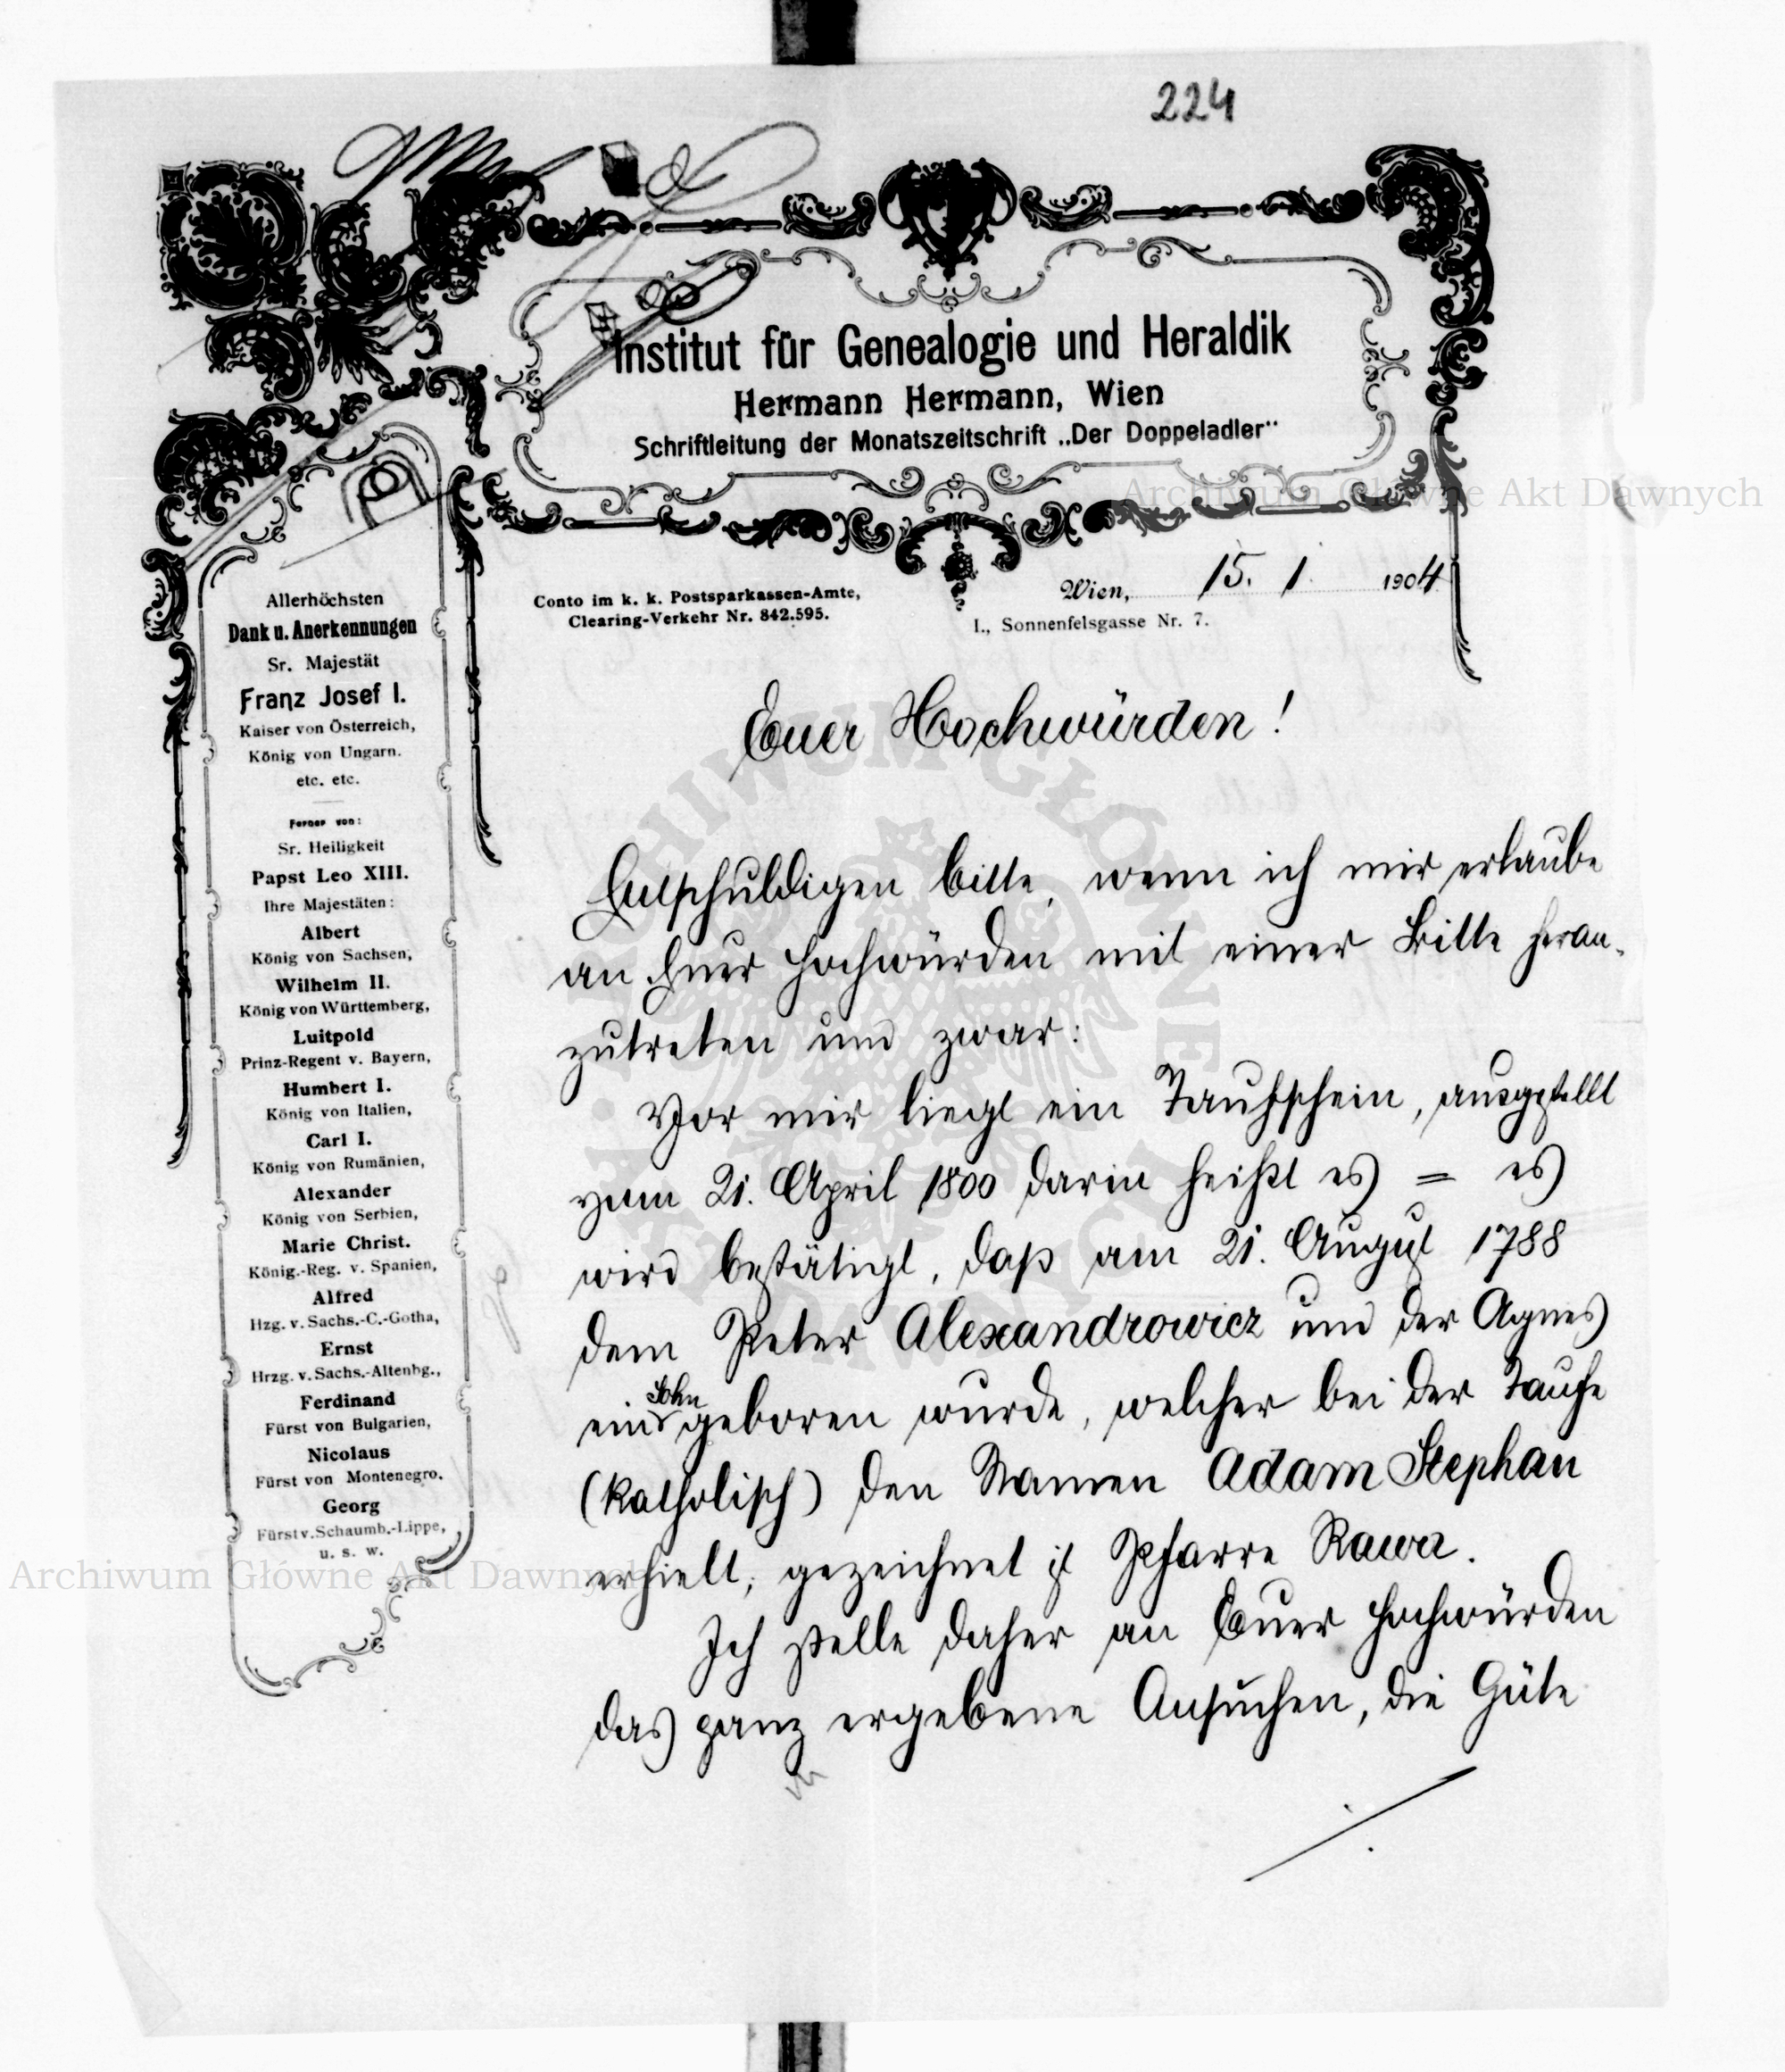 224
Institut für Genealogie und Heraldik
Hermann Hermann, Wien
Schriftleitung der Monatszeitschrift „Der Doppeladler“
Conto im k. k. Postsparkassen-Amte,
Clearing-Verkehr Nr. 842.595.
Wien, 15. 1. 1904
I., Sonnenfelsgasse Nr. 7.
Allerhöchsten
Dank u. Anerkennungen
Sr. Majestät
Franz Josef I.
Kaiser von Österreich,
König von Ungarn.
etc. etc.
Ferner von:
Sr. Heiligkeit
Papst Leo XIII.
Ihre Majestäten:
Albert
König von Sachsen,
Wilhelm II.
König von Württemberg,
Luitpold
Prinz-Regent v. Bayern,
Humbert I.
König von Italien,
Carl I.
König von Rumänien,
Alexander
König von Serbien,
Marie Christ.
König.-Reg. v. Spanien,
Alfred
Hzg. v. Sachs.-C.-Gotha,
Ernst
Hrzg. v. Sachs.-Altenbg.,
Ferdinand
Fürst von Bulgarien,
Nicolaus
Fürst von Montenegro.
Georg
Fürst v. Schaumb.-Lippe,
u. s. w.
Euer Hochwürden!
Entschuldigen bitte, wenn ich mir erlaube
an Euer Hochwürden mit einer Bitte heran-
zutreten und zwar:
Vor mir liegt ein Taufschein, ausgestellt
vom 21. April 1800 darin heißt es = es
wird bestätigt, daß am 21. August 1788
dem Peter Alexandrowicz und der Agnes
ein Sohn geboren wurde, welcher bei der Taufe
(katholisch) den Namen Adam Stephan
erhielt; gezeichnet ist Pfarre Rawa.
Ich stelle daher an Euer Hochwürden
das ganz ergebene Ansuchen, die Güte
./.
Archiwum Główne Akt Dawnych
Archiwum Główne Akt Dawnych